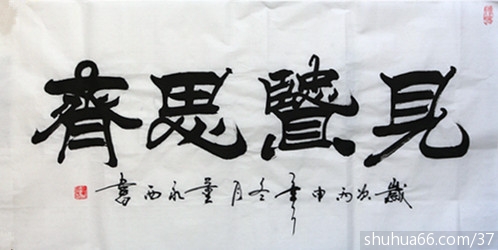 見賢思齊
歲次丙申年冬月董永西書
shuhua66.com/37